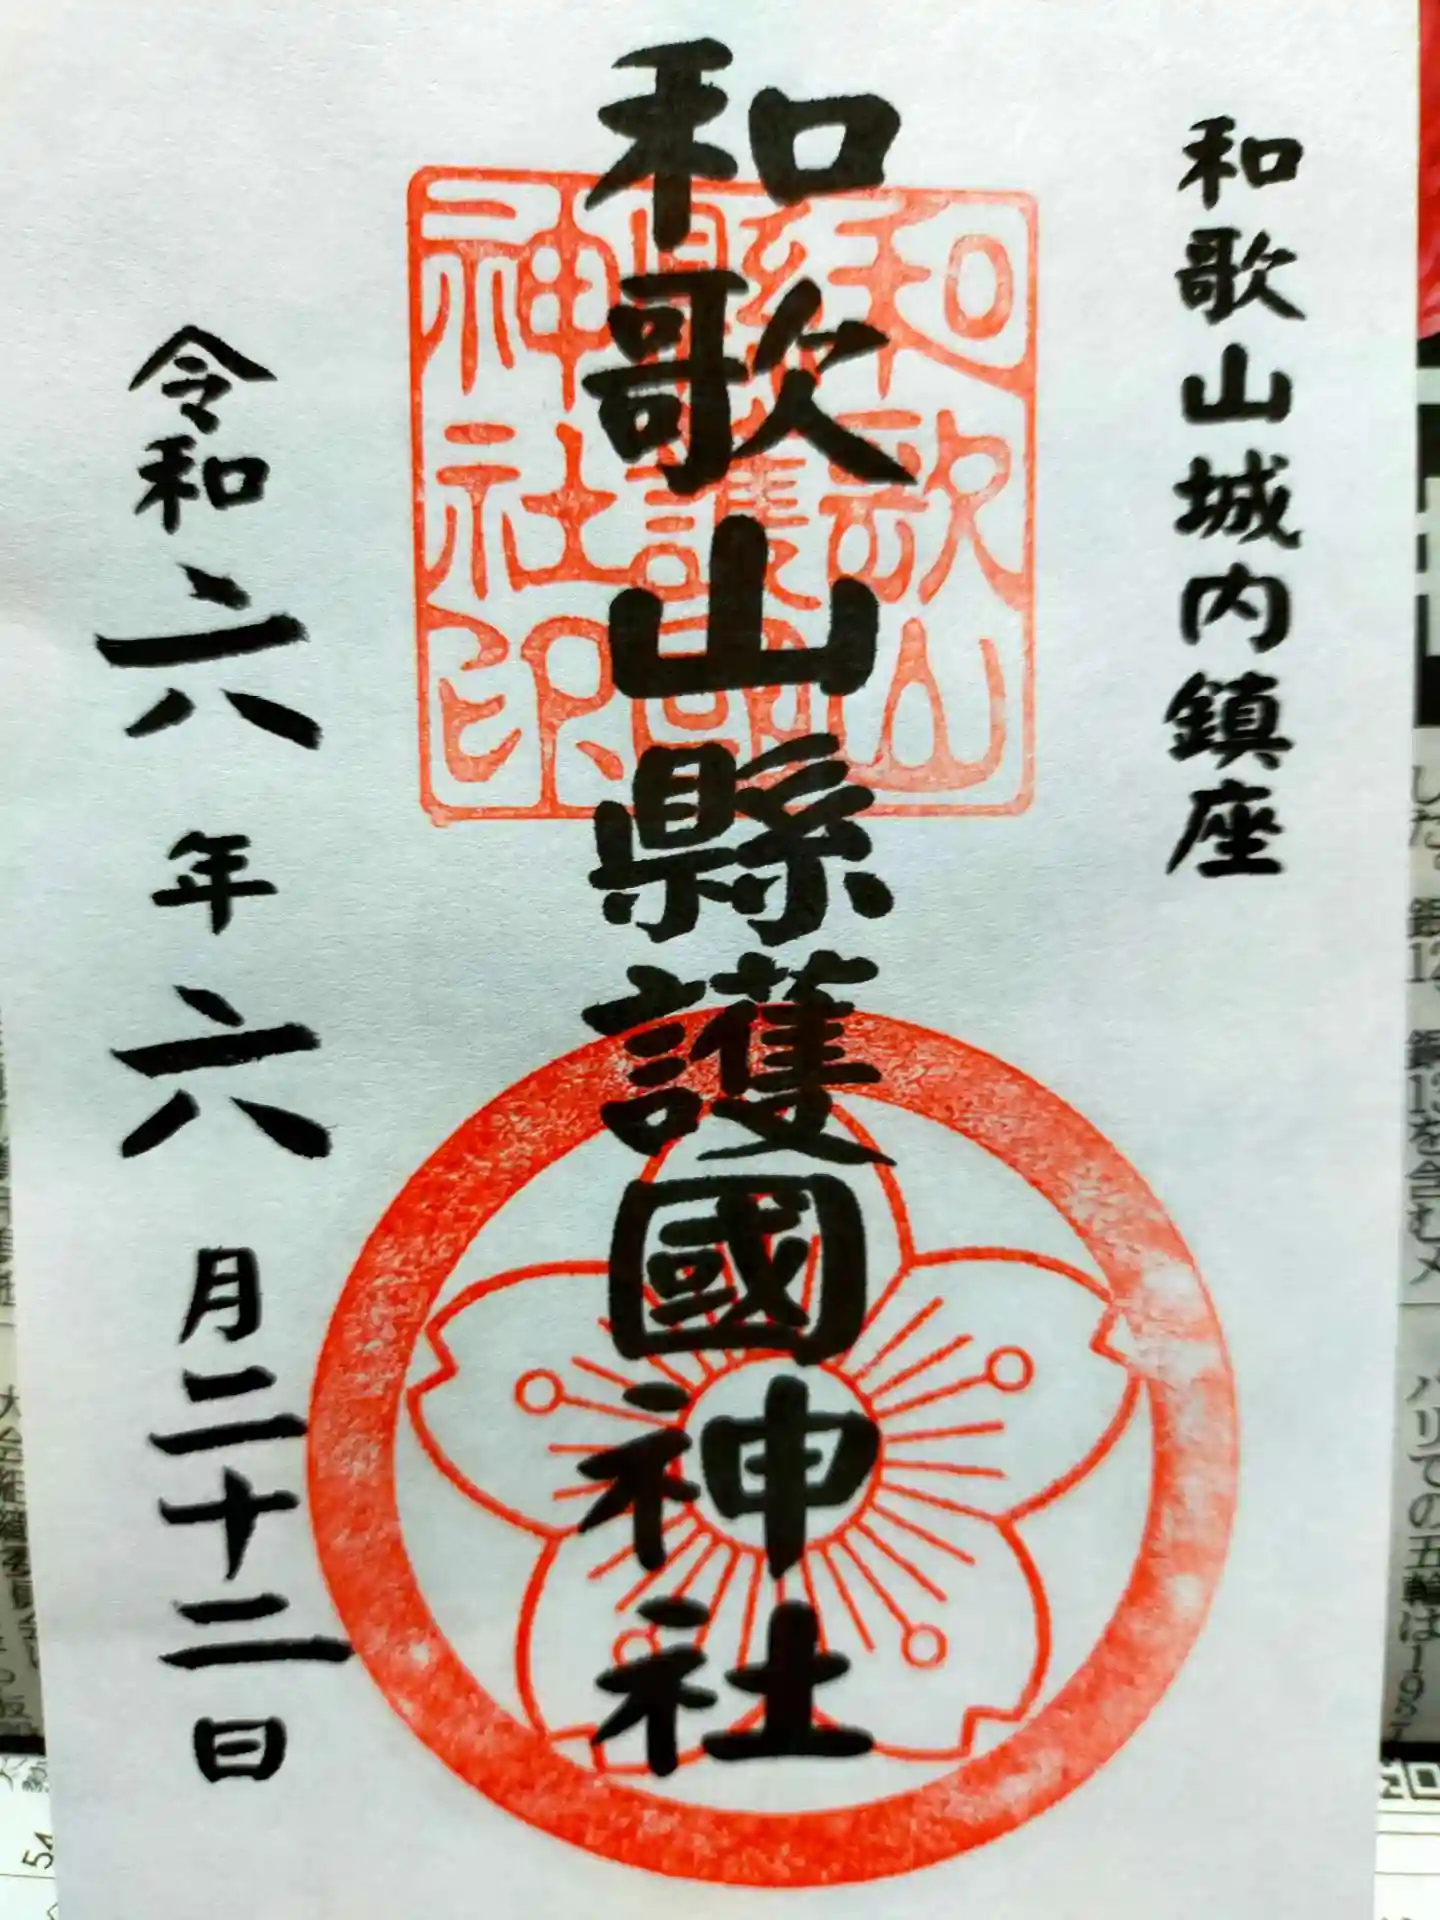 和歌山城内鎮座
和歌山縣護國神社
和歌山
縣護國
神社印
令和六年六月二十二日
した。銀12、銅13を含むメ
パリでの五輪は
54